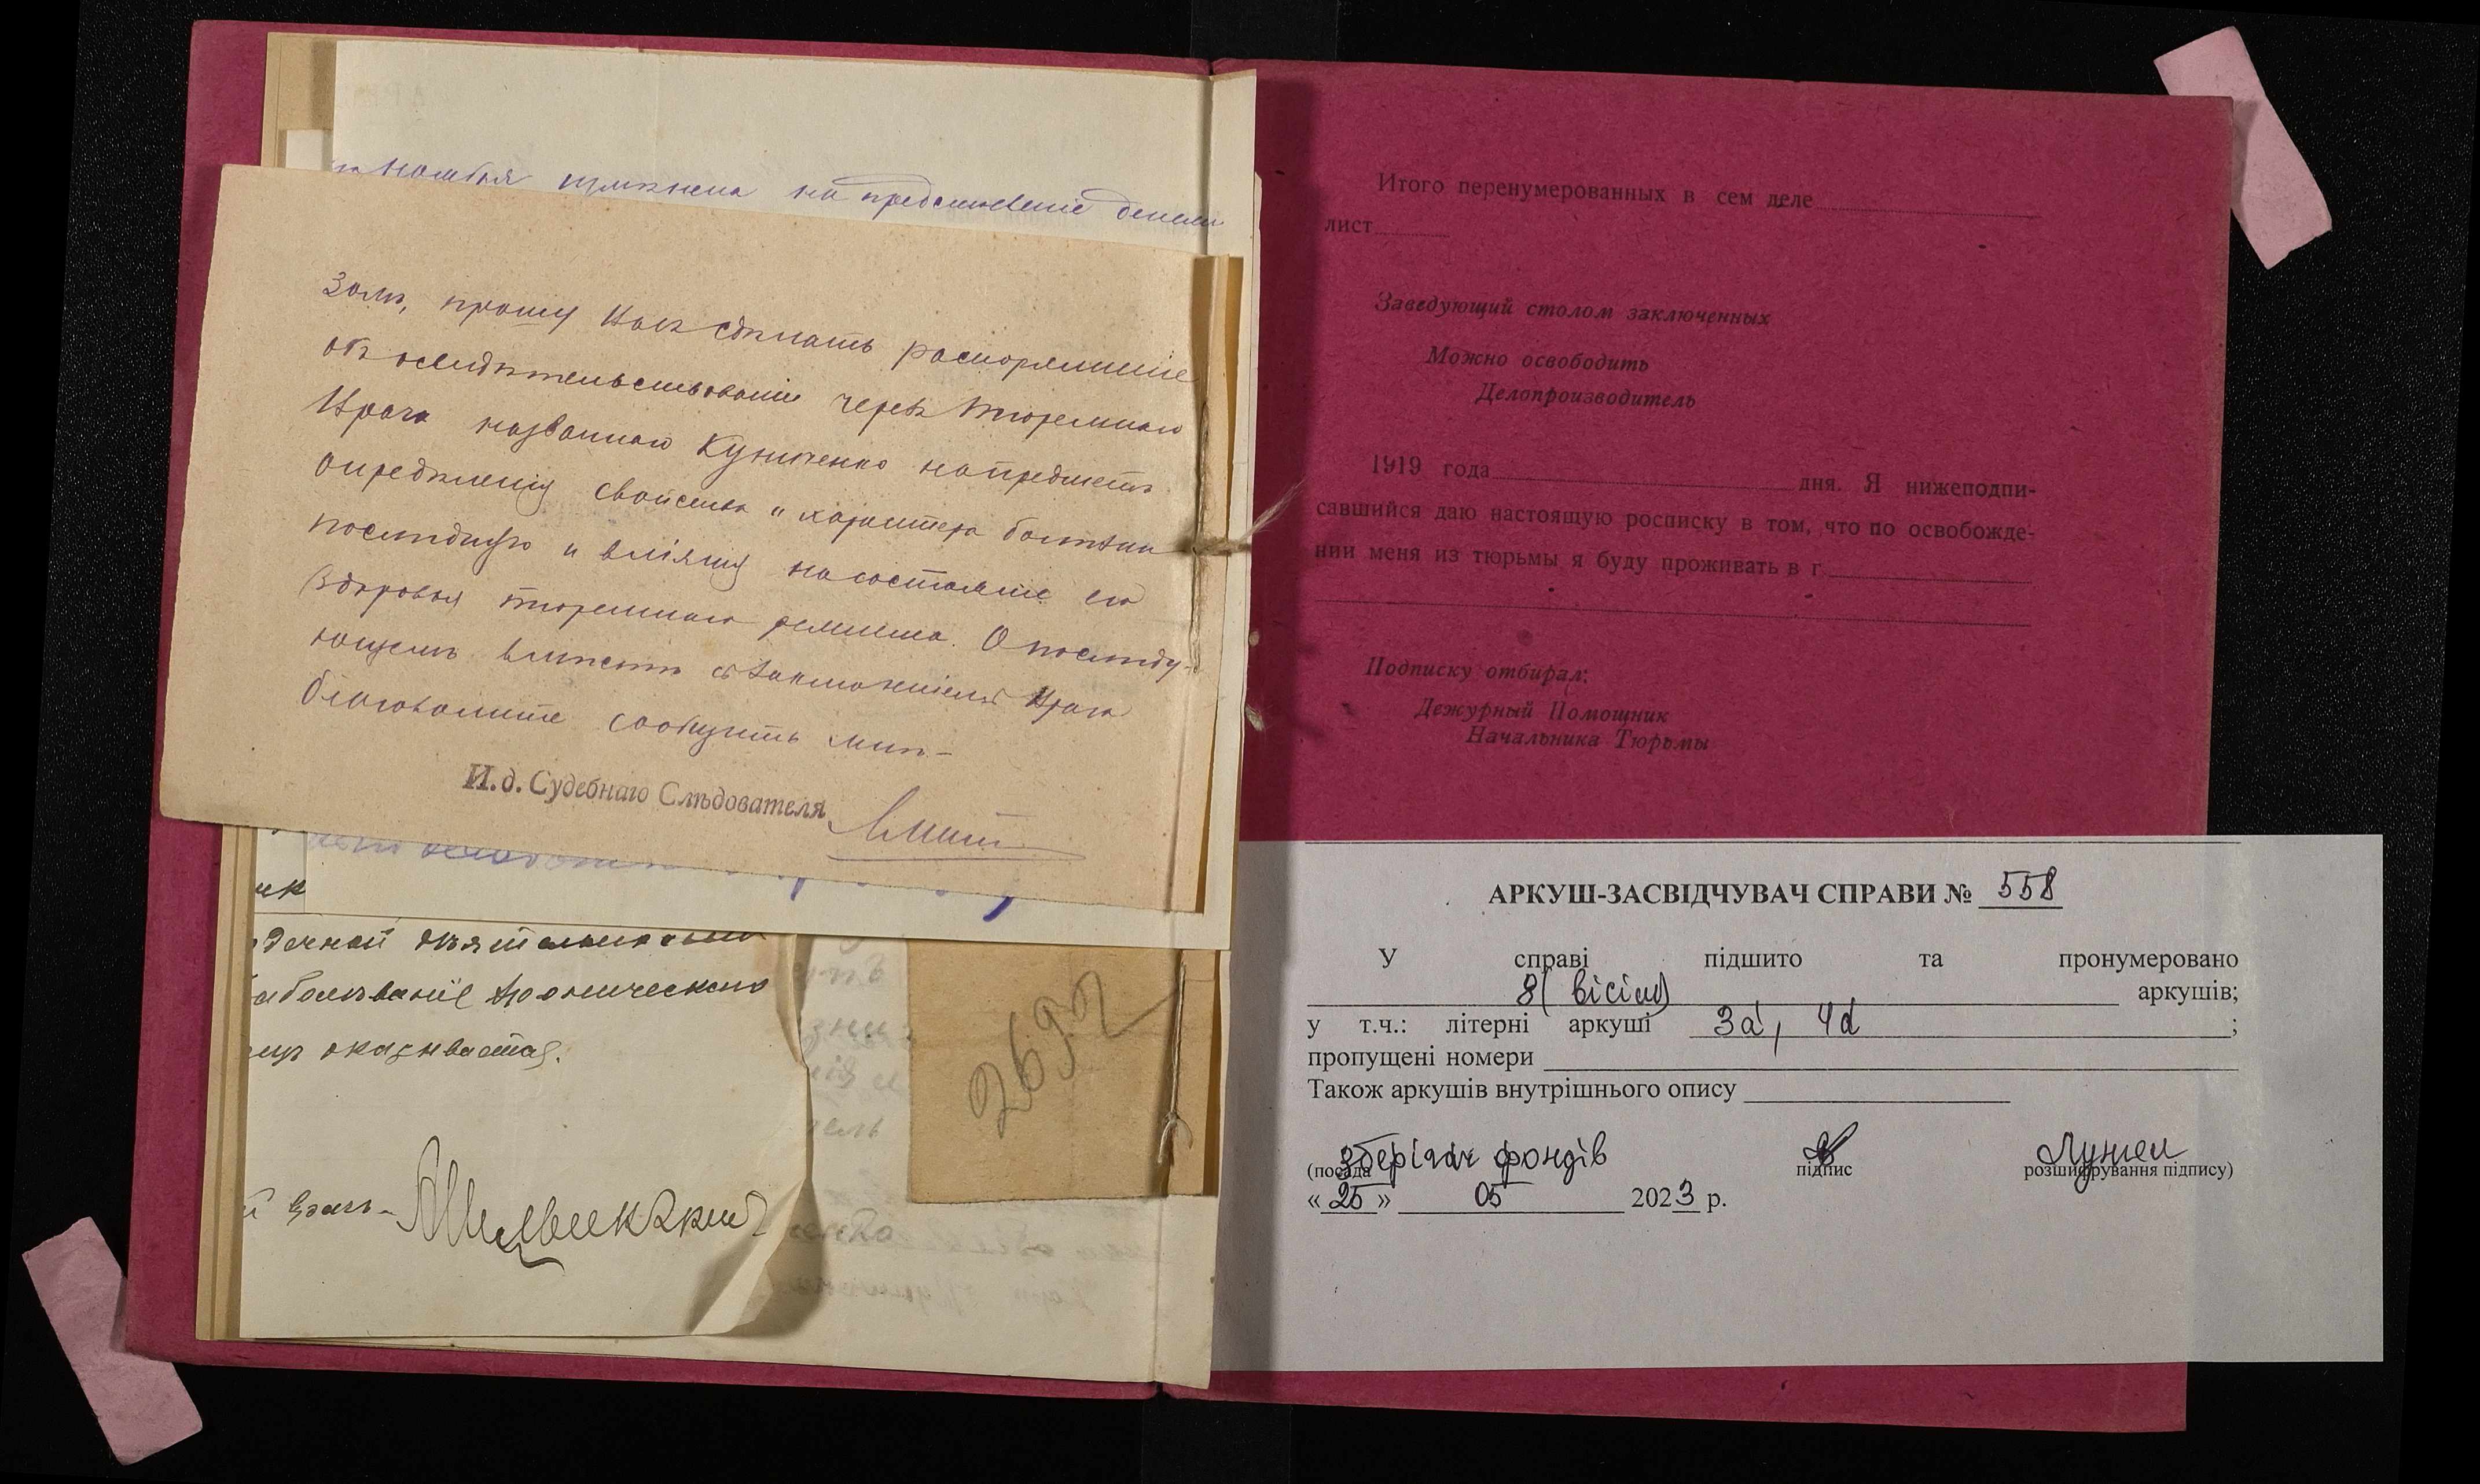 ноября измѣнена на представленіе денежн
зомъ, прошу Васъ сдѣлать распоряженіе
объ освидѣтельствованіи черезъ тюремнаго
Врача названнаго Куниченко на предметъ
опредѣленія свойства и характера болѣзни
послѣдняго и вліянія на состояніе его
здоровья тюремнаго режима. О послѣду-
ющемъ вмѣстѣ съ заключеніемъ Врача
благоволите сообщить мнѣ.
И. д. Судебнаго Слѣдователя
дечной дѣятельности
заболѣваніе хроническаго
оказывается.
й врачъ
2692
Итого перенумерованных в сем деле
лист
Заведующий столом заключенных
Можно освободить
Делопроизводитель
1919 года дня. Я нижеподпи-
савшийся даю настоящую росписку в том, что по освобожде-
нии меня из тюрьмы я буду проживать в г.
Подписку отбирал:
Дежурный Помощник
Начальника Тюрьмы
АРКУШ-ЗАСВІДЧУВАЧ СПРАВИ № 558
У справі підшито та пронумеровано
8 (вісім) аркушів;
у т.ч.: літерні аркуші 3а, 4а ;
пропущені номери
Також аркушів внутрішнього опису
Зберігач фондів
(посада підпис розшифрування підпису)
« 25 » 05 2023 р.